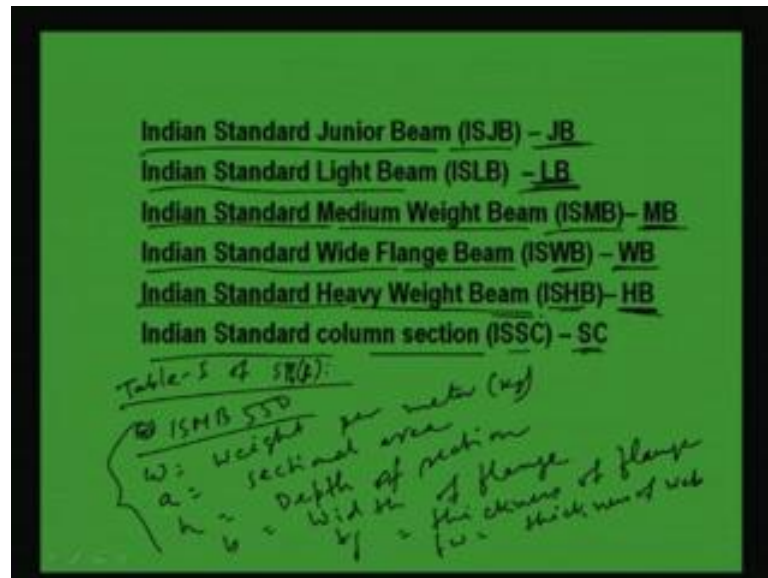 Indian Standard Junior Beam (ISJB) – JB
Indian Standard Light Beam (ISLB) – LB
Indian Standard Medium Weight Beam (ISMB)– MB
Indian Standard Wide Flange Beam (ISWB) – WB
Indian Standard Heavy Weight Beam (ISHB)– HB
Indian Standard column section (ISSC) – SC
Table-I of
ISMB 550
w: weight per meter (kg)
a = sectional area
h = Depth of section
b = Width of flange
tf = thickness of flange
tw = thickness of web